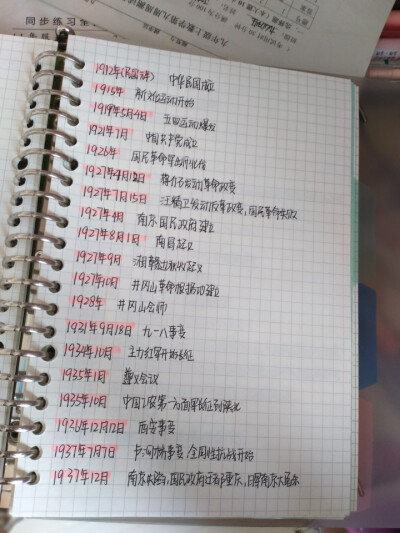 同步练习生
九年级上数学第九周周测试
1912年(民国元年) 中华民国成立
1915年 新文化运动开始
1919年5月4日 五四运动爆发
1921年7月 中国共产党成立
1926年 国民革命军出师北伐
1927年4月12日 蒋介石发动反革命政变
1927年7月15日 汪精卫发动反革命政变,国民革命失败
1927年4月 南京国民政府建立
1927年8月1日 南昌起义
1927年9月 湘赣边秋收起义
1927年10月 井冈山革命根据地建立
1928年 井冈山会师
1931年9月18日 九一八事变
1934年10月 主力红军开始长征
1935年1月 遵义会议
1935年10月 中国工农红军第一方面军长征到陕北
1936年12月12日 西安事变
1937年7月7日 卢沟桥事变,全国性抗战开始
1937年12月 南京失陷,国民政府迁都重庆,日军南京大屠杀